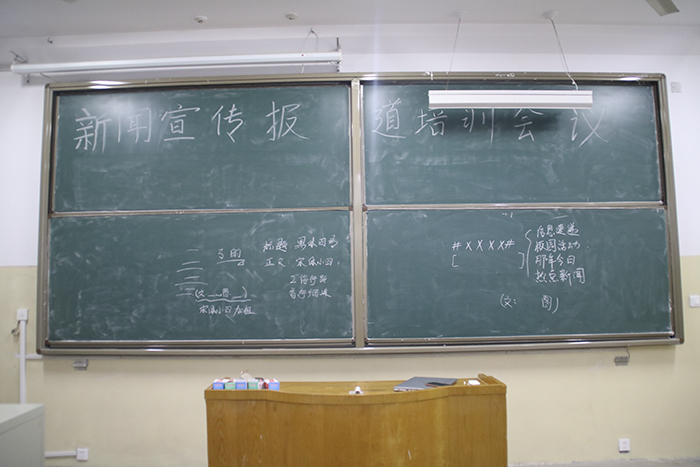 新闻宣传报道培训会议
标题 黑体四号
正文 宋体小四
(文 图)
宋体小四 加粗
#XXXX#
[ ]
信息速递
校园活动
那年今日
热点新闻
(文: 图)